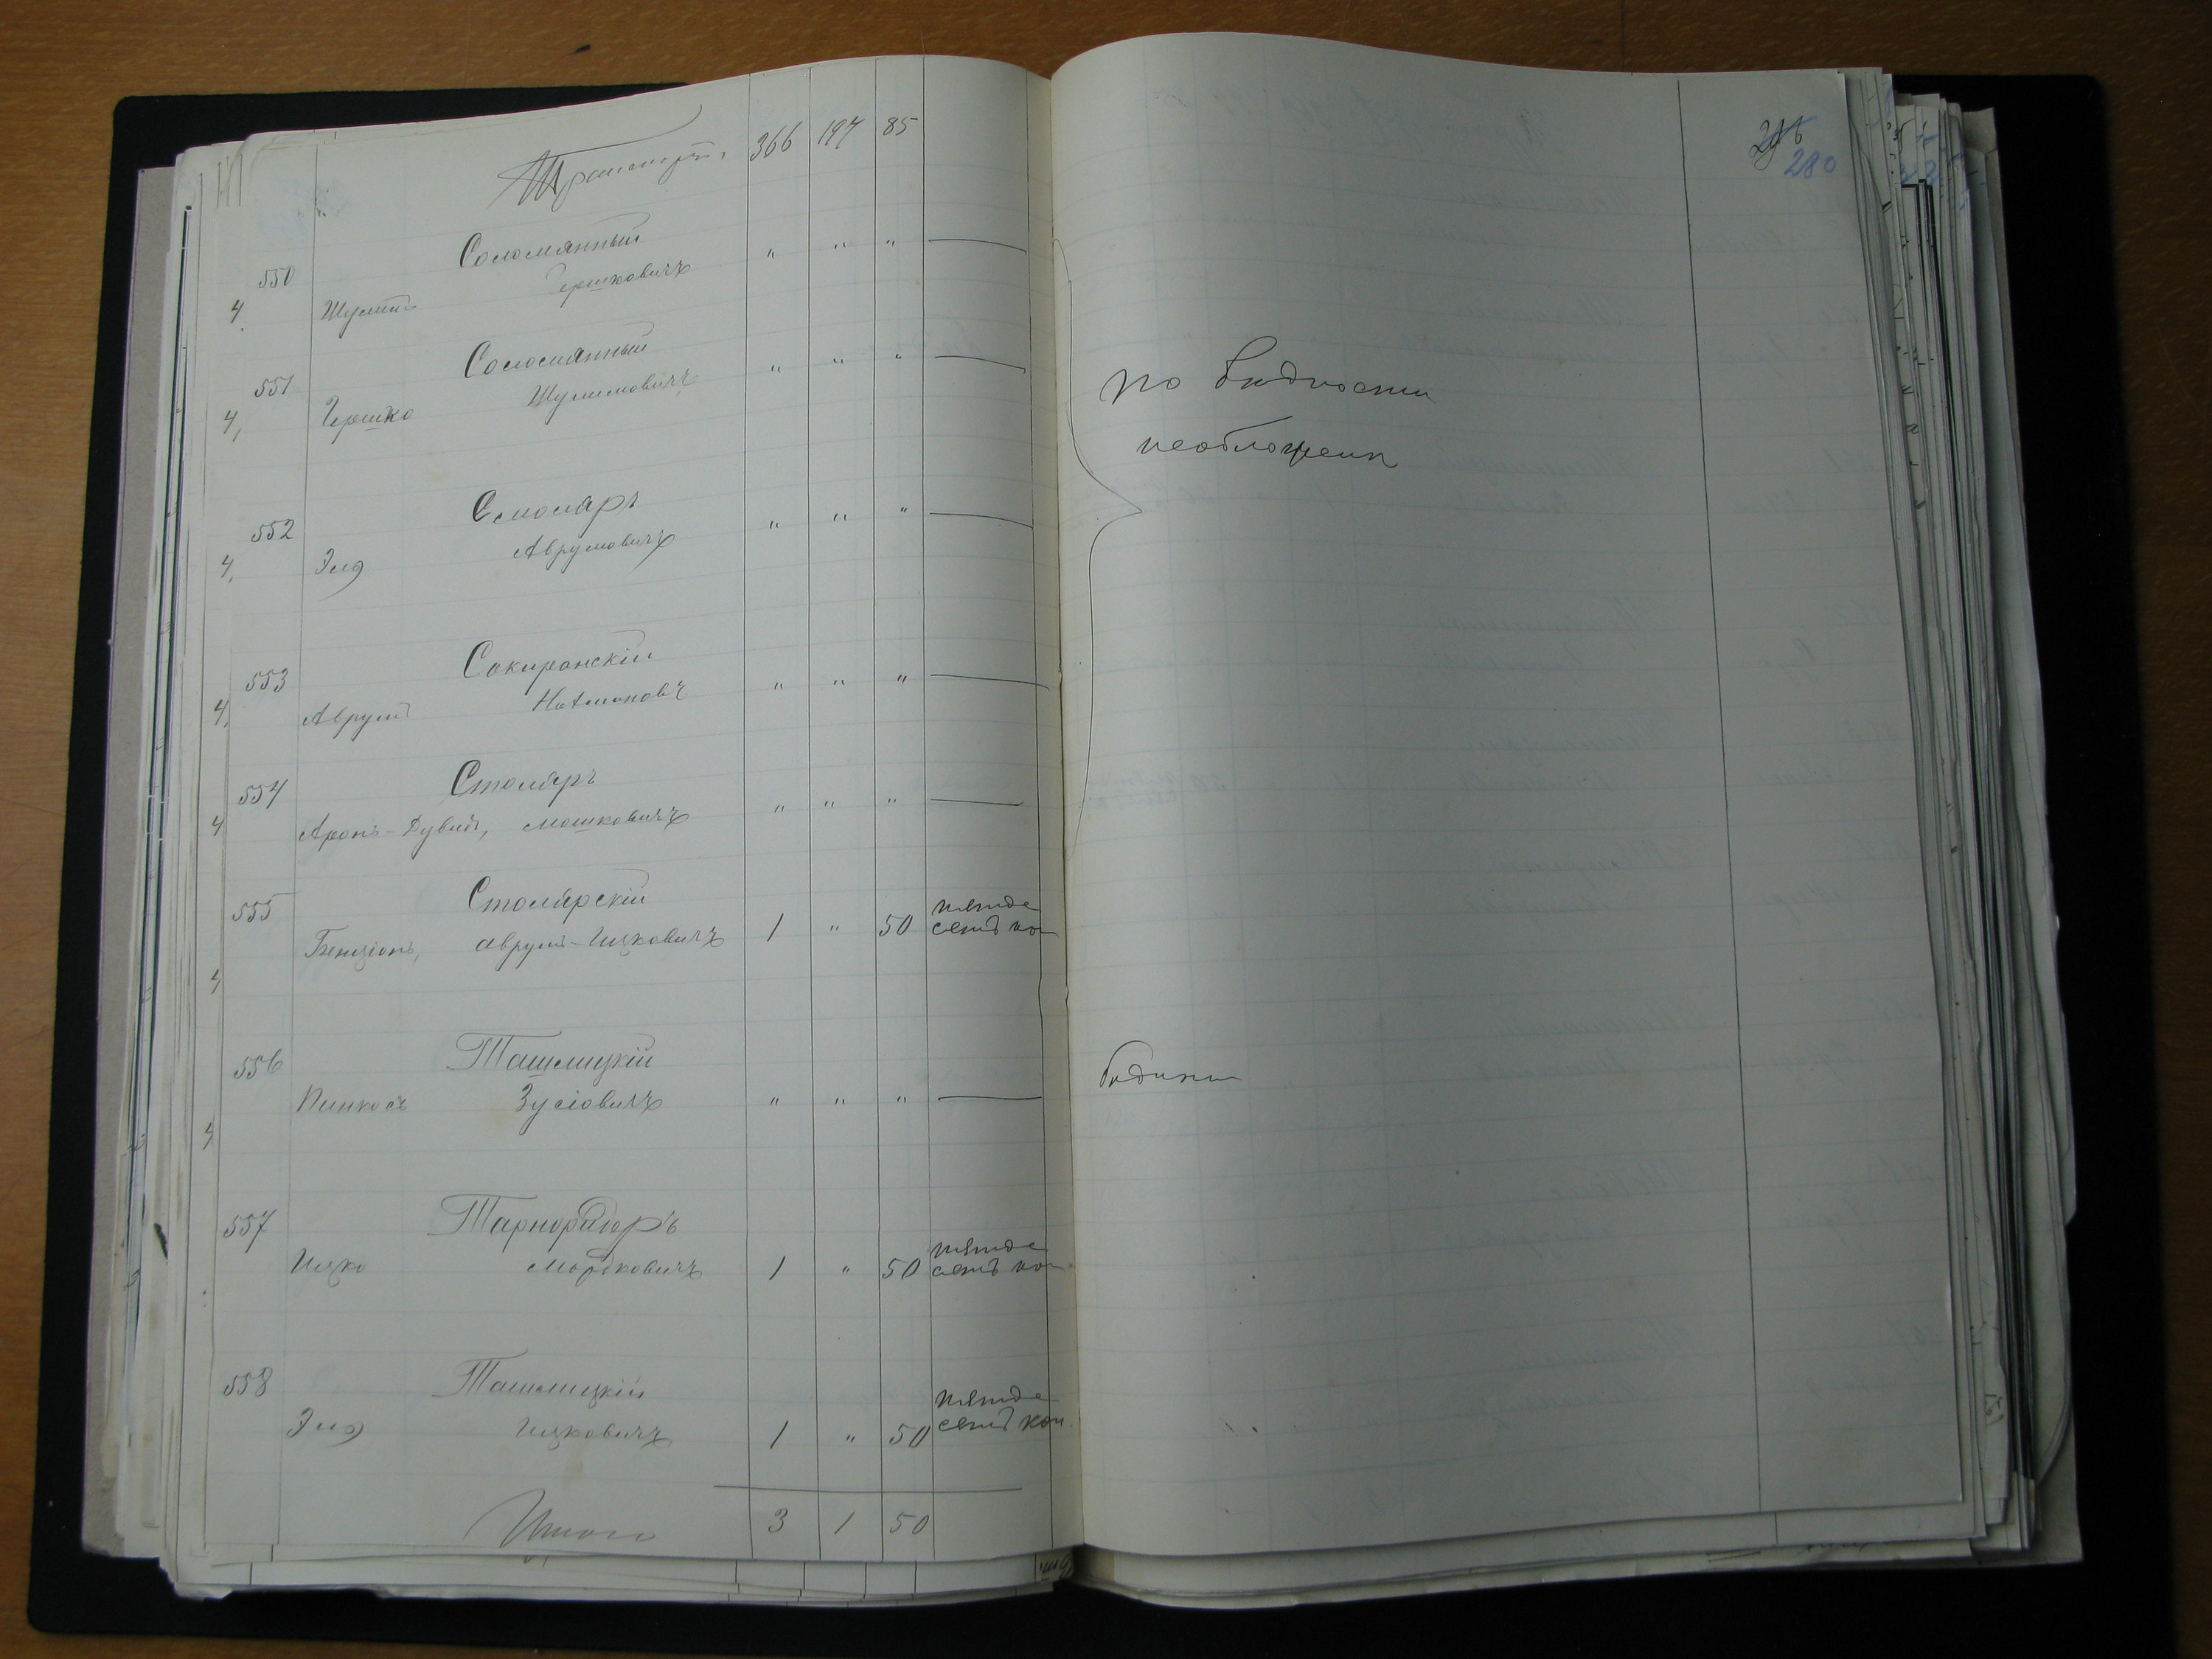 Транспортъ 366 197 85
550 Соломянный " " "
4. Шулимъ Гершковичъ
551 Соломянный " " "
4, Гершко Шулимовичъ
552 Смоляръ " " "
4, Эля Аврумовичъ
553 Сокирянскій " " "
4, Аврумъ Нахмановъ
554 Столяръ " " "
4 Аронъ-Дувидъ, Мошковичъ
555 Столярскій пятьде
Бенціонъ, Аврумъ-Ицковичъ 1 " 50 сятъ ко
4
556 Ташлицкій
Пинхосъ Зусіовичъ " " "
4
557 Тарнорудеръ пятьде
Ицко Мордковичъ 1 " 50 сятъ ко
558 Ташлицкій пятьде
Эля Ицковичъ 1 " 50 сятъ коп.
Итого 3 1 50
280
по бѣдности
необложены
бѣдный